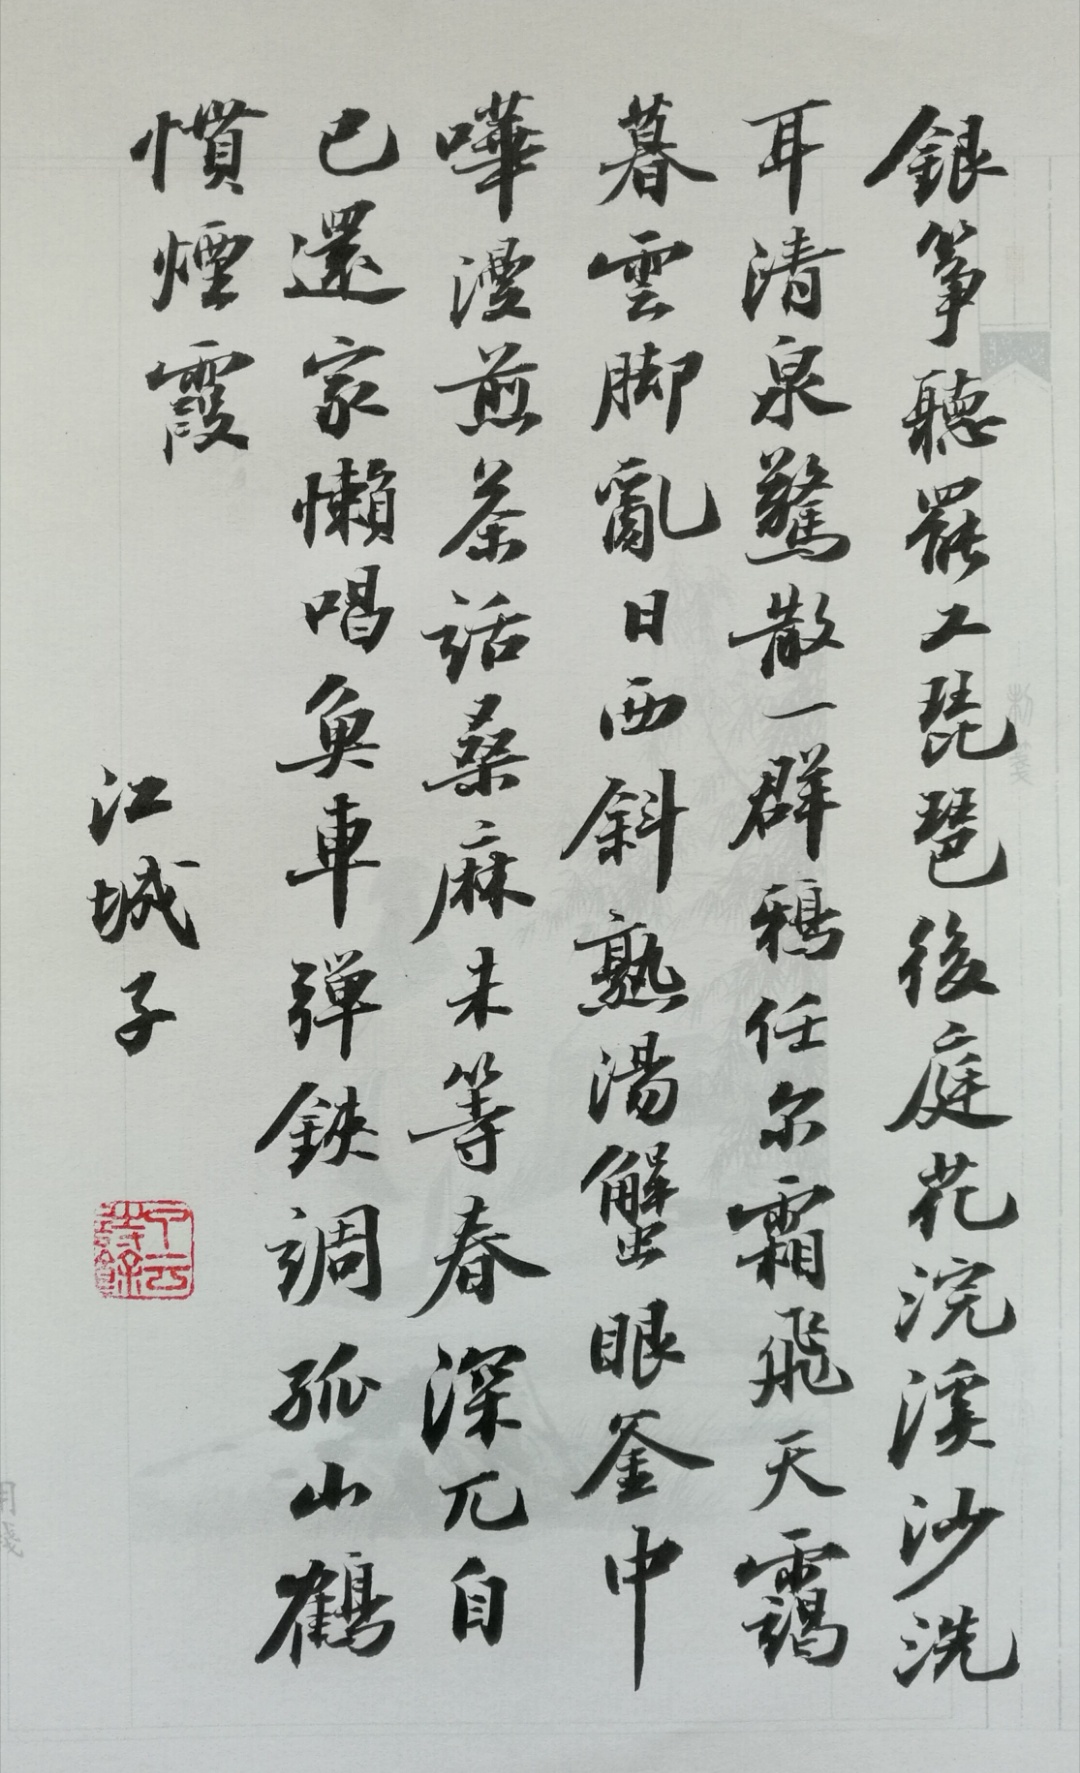 銀箏聽罷又琵琶後庭花浣溪沙洗
耳清泉驚散一群鴉任尔霜飛天靄
暮雲脚亂日西斜熟湯蟹眼釜中
嘩漫煎茶話桑麻未等春深兀自
已還家懶唱魚車彈鋏調孤山鶴
慣煙霞
江城子